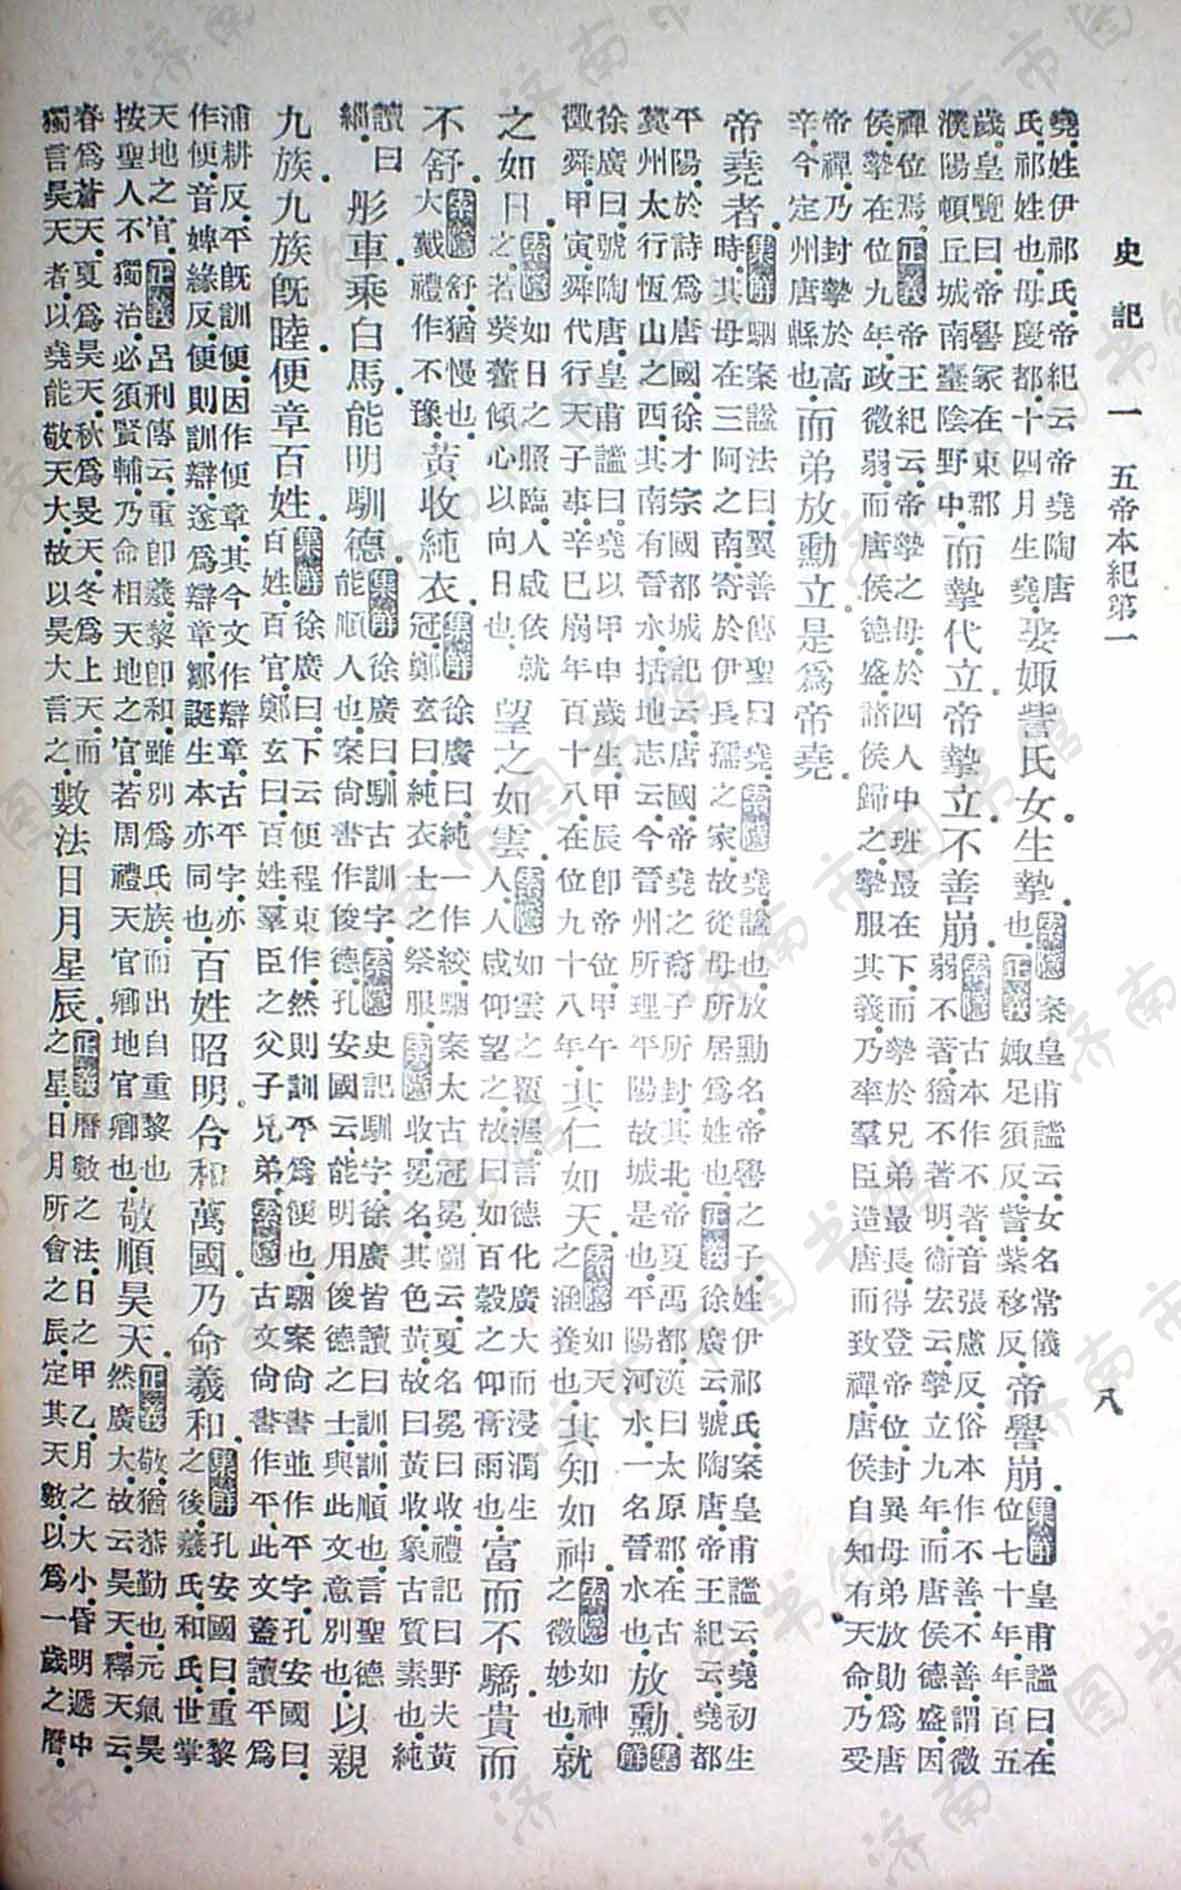 史記一 五帝本紀第一 八
堯姓伊祁氏。帝紀云帝堯陶唐
氏。祁姓也。母慶都。十四月生堯。
娶娵訾氏女。生摯。
索隱 案皇甫謐云。女名常儀
也。正義 娵足須反。訾紫移反。
帝嚳崩。
集解 皇甫謐曰。在
位七十年。年百五
歲。皇覽曰。帝嚳冢在東郡
濮陽頓丘城南臺陰野中。
而摯代立。帝摯立。不善崩。
索隱 古本作不著。音張慮反。俗本作不善。不善謂微
弱。不著猶不著明。衞宏云。摯立九年。而唐侯德盛。因
禪位焉。正義 帝王紀云。帝摯之母。於四人中班最在下。而摯於兄弟最長。得登帝位。封異母弟放勛爲唐
侯。摯在位九年。政微弱。而唐侯德盛。諸侯歸之。摯服其義。乃率羣臣造唐而致禪。唐侯自知有天命。乃受
帝禪。乃封摯於高
辛。今定州唐縣也。
而弟放勳立。是爲帝堯。
帝堯者。
集解 駰案謚法曰。翼善傳聖曰堯。索隱 堯謚也。放勳名。帝嚳之子。姓伊祁氏。案皇甫謐云。堯初生
時。其母在三阿之南。寄於伊長孺之家。故從母所居爲姓也。正義 徐廣云。號陶唐。帝王紀云。堯都
平陽。於詩爲唐國。徐才宗國都城記云。唐國帝堯之裔子所封。其北帝夏禹都。漢曰太原郡。在古
冀州太行恆山之西。其南有晉水。括地志云。今晉州所理平陽故城是也。平陽河水一名晉水也。
放勳。集解
徐廣曰。號陶唐。皇甫謐曰。堯以甲申歲生。甲辰卽帝位。甲午
徵舜。甲寅舜代行天子事。辛巳崩。年百十八。在位九十八年。
其仁如天。
索隱 如天
之涵養也。
其知如神。
索隱 如神
之微妙也。
就
之如日。
索隱 如日之照臨。人咸依就
之。若葵藿傾心以向日也。
望之如雲。
索隱 如雲之覆渥。言德化廣大而浸潤生
人。人咸仰望之。故曰如百穀之仰膏雨也。
富而不驕。貴而
不舒。
索隱 舒。猶慢也。
大戴禮作不豫。
黃收純衣。
集解 徐廣曰。純一作絞。駰案太古冠冕圖云。夏名冕曰收。禮記曰。野夫黃
冠。鄭玄曰。純衣。士之祭服。索隱 收。冕名。其色黃。故曰黃收。象古質素也。純
讀曰
緇。
彤車。乘白馬。能明馴德。
集解 徐廣曰。馴古訓字。索隱 史記馴字。徐廣皆讀曰訓。訓。順也。言聖德
能順人也。案尚書作俊德。孔安國云。能明用俊德之士。與此文意別也。
以親
九族。九族旣睦。便章百姓。
集解 徐廣曰。下云便程東作。然則訓平爲便也。駰案尚書並作平字。孔安國曰。
百姓。百官。鄭玄曰。百姓。羣臣之父子兄弟。索隱 古文尚書作平。此文蓋讀平爲
浦耕反。平旣訓便。因作便章。其今文作辯章。古平字亦
作便。音婢緣反。便則訓辯。遂爲辯章。鄒誕生本亦同也。
百姓昭明。合和萬國。乃命羲和。
集解 孔安國曰。重黎
之後。羲氏和氏世掌
天地之官。正義 呂刑傳云。重卽羲。黎卽和。雖別爲氏族。而出自重黎也。
按聖人不獨治。必須賢輔。乃命相天地之官。若周禮天官卿地官卿也。
敬順昊天。
正義 敬。猶恭勤也。元氣昊
然廣大。故云昊天。釋天云。
春爲蒼天。夏爲昊天。秋爲旻天。冬爲上天。而
獨言昊天者。以堯能敬天大。故以昊大言之。
數法日月星辰。
正義 曆數之法。日之甲乙。月之大小。昏明遞中
之星。日月所會之辰。定其天數。以爲一歲之曆。